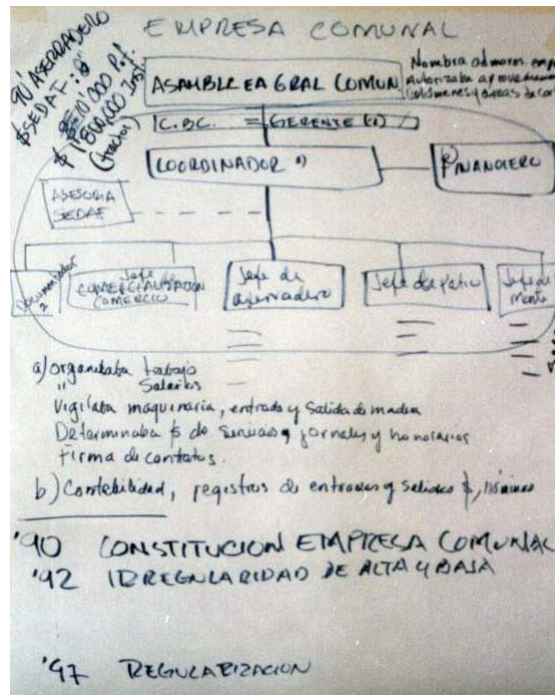 EMPRESA COMUNAL
90' ASERRADERO
$SEDAF:
10 000 P.f.
$ 1'800,000 Inst.
(tractor)
ASAMBLEA GRAL COMUN.
Nombra admores. emp
Autorizaba aprovechamien
volúmenes y áreas de cort
C.BC. = GERENTE
COORDINADOR a)
FINANCIERO
ASESORIA
SEDAF
Documentador
2
Jefe de
COMERCIALIZACION
COMERCIO
Jefe de
aserradero
Jefe de patio
Jefe de
mont
a) organizaba trabajo
" Salarios
Vigilaba maquinaria, entrada y salida de madera
Determinaba $ de servicios, jornales y honorarios
Firma de contratos.
b) Contabilidad, registros de entradas y salidas $, nóminas
'90 CONSTITUCION EMPRESA COMUNAL
'92 IRREGULARIDAD DE ALTA Y BAJA
'97 REGULARIZACION